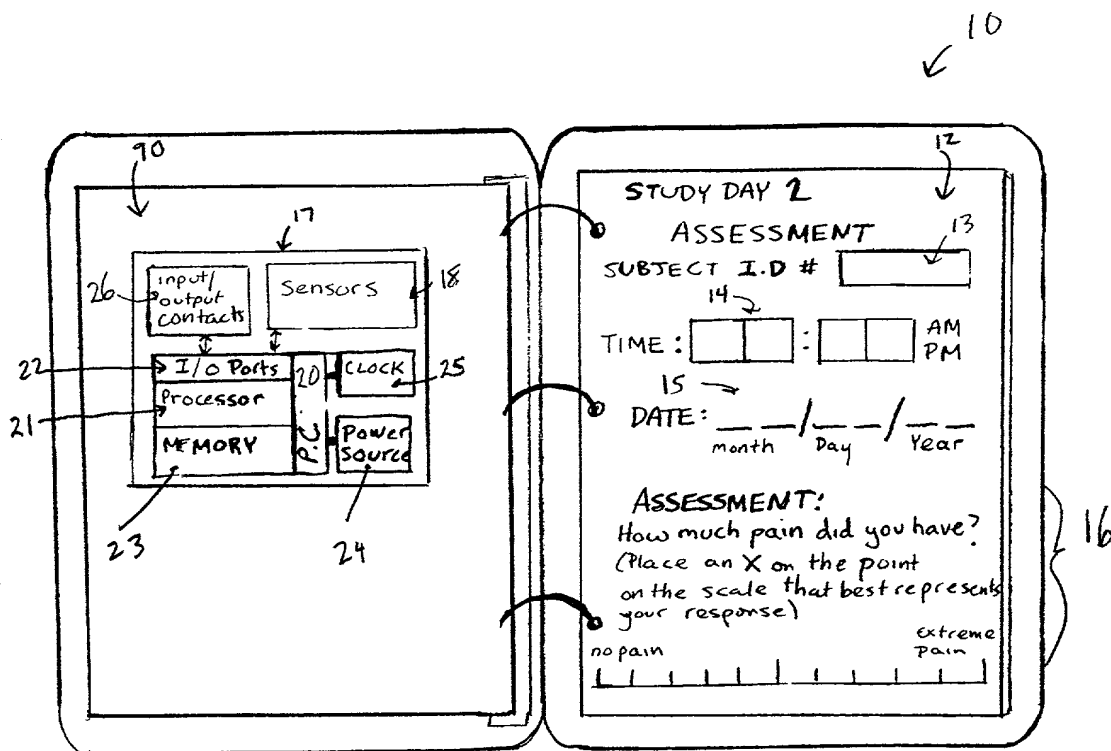 10
90
17
26
input/
output
contacts
Sensors
18
22
I/O Ports
20
CLOCK
25
21
Processor
P.C.
MEMORY
Power
Source
23
24
12
STUDY DAY 2
ASSESSMENT
13
SUBJECT I.D #
14
TIME: : AM
PM
15
DATE: __ __/__ __/__ __
month Day Year
ASSESSMENT:
How much pain did you have?
(Place an X on the point
on the scale that best represents
your response)
16
no pain
extreme
pain